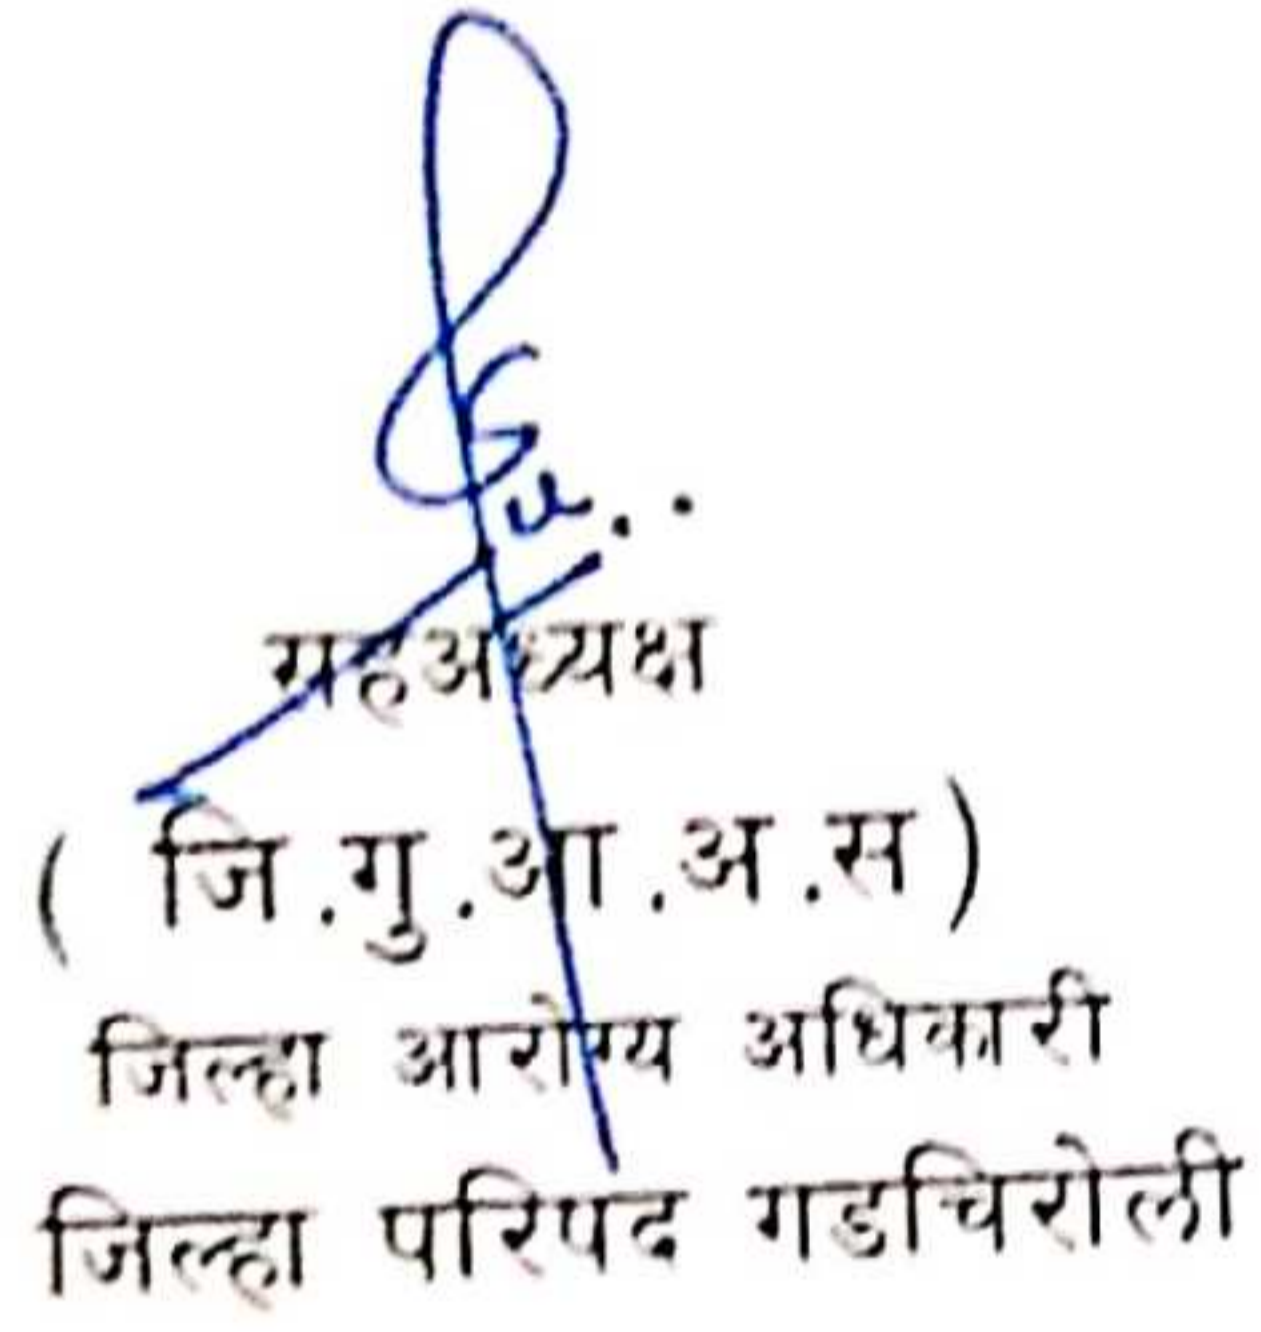 ग्रहअध्यक्ष
( जि.गु.आ.अ.स )
जिल्हा आरोग्य अधिकारी
जिल्हा परिषद गडचिरोली